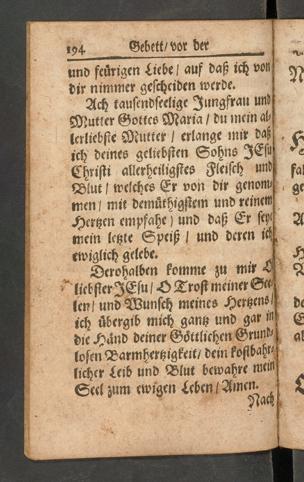 194 Gebett/ vor der
und feürigen Liebe/ auf daß ich von
dir nimmer gescheiden werde.
Ach tausendseelige Jungfrau und
Mutter Gottes Maria/ du mein al-
lerliebste Mutter/ erlange mir daß
ich deines geliebsten Sohns JEsu
Christi allerheiligstes Fleisch und
Blut/ welches Er von dir genom-
men/ mit demüthigstem und reinem
Hertzen empfahe/ und daß Er seye
mein letzte Speiß/ und deren ich
ewiglich gelebe.
Derohalben komme zu mir O
liebster JEsu/ O Trost meiner See-
len/ und Wunsch meines Hertzens/
ich übergib mich gantz und gar in
die Händ deiner Göttlichen Grund-
losen Barmhertzigkeit/ dein kostbahr-
licher Leib und Blut bewahre mein
Seel zum ewigen Leben/ Amen.
Nach